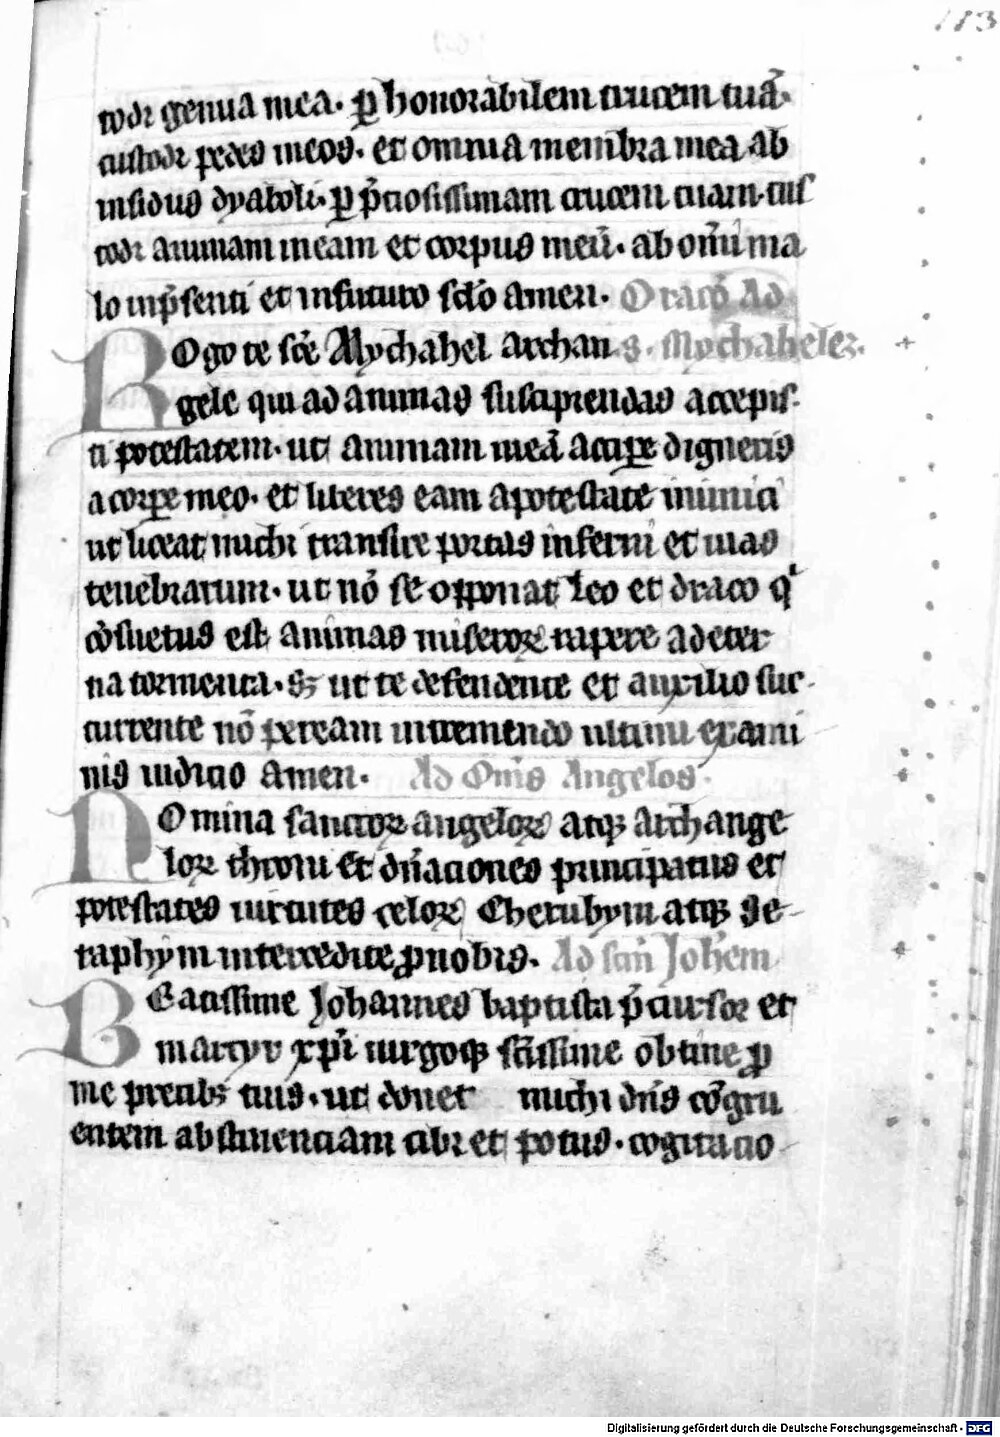 113
todi genua mea. p honorabilem crucem tuā.
custodi pedes meos. et omnia membra mea ab
insidiis dyaboli. p p̄ciosissimam crucem tuam. cus
todi animam meam et corpus meū. ab om̄i ma
lo in p̄senti et in futuro sc̄lo amen. Oracō Ad
ROgo te sc̄e Mychahel archan s. Mychahelez.
gele qui ad animas suscipiendas accepis
ti potestatem. ut animam meā accipe digneris
a corpe meo. et liberes eam a potestate inimici
ut liceat michi transire portas inferni et uias
tenebrarum. ut nō se opponat leo et draco qi
cōsuetus est animas miseroꝝ rapere ad eter
na tormenta. sꝫ ut te defendente et auxilio suc
currente nō peream in tremendo ultimi exami
nis iudicio amen. Ad Om̄s Angelos.
NOmina sanctoꝝ angeloꝝ atqꝫ archange
loꝝ throni et dn̄aciones principatus et
potestates uirtutes celoꝝ Cherubym atqꝫ Se
raphym intercedite ꝓ nobis. Ad sc̄m Joh̄em
BEatissime Johannes baptista p̄cursor et
martyr xp̄i uirgoqꝫ sc̄issime obtine ꝓ
me precibꝫ tuis. ut donet michi dn̄s cōgru
entem abstinenciam cibi et potus. cogitacio
Digitalisierung gefördert durch die Deutsche Forschungsgemeinschaft - DFG